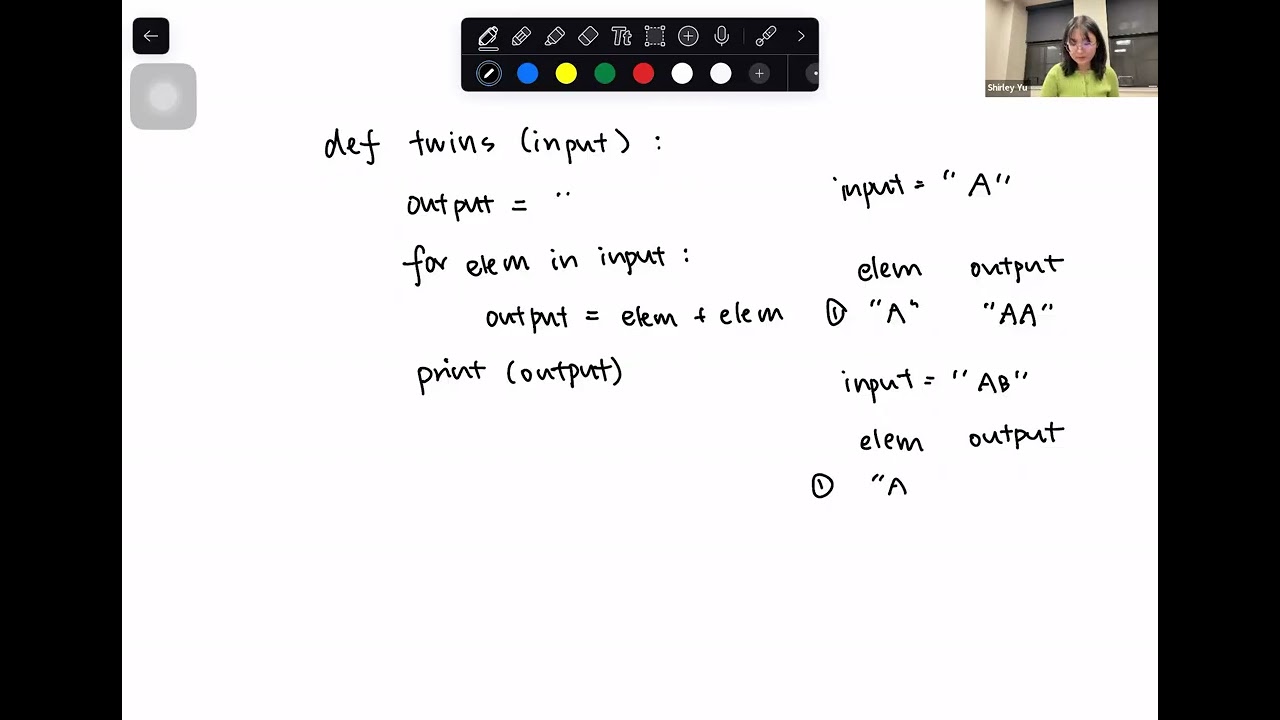 Tt
Shirley Yu
def twins (input) :
output = "
for elem in input :
output = elem + elem
print (output)
input = "A"
elem output
① "A" "AA"
input = "AB"
elem output
① "A